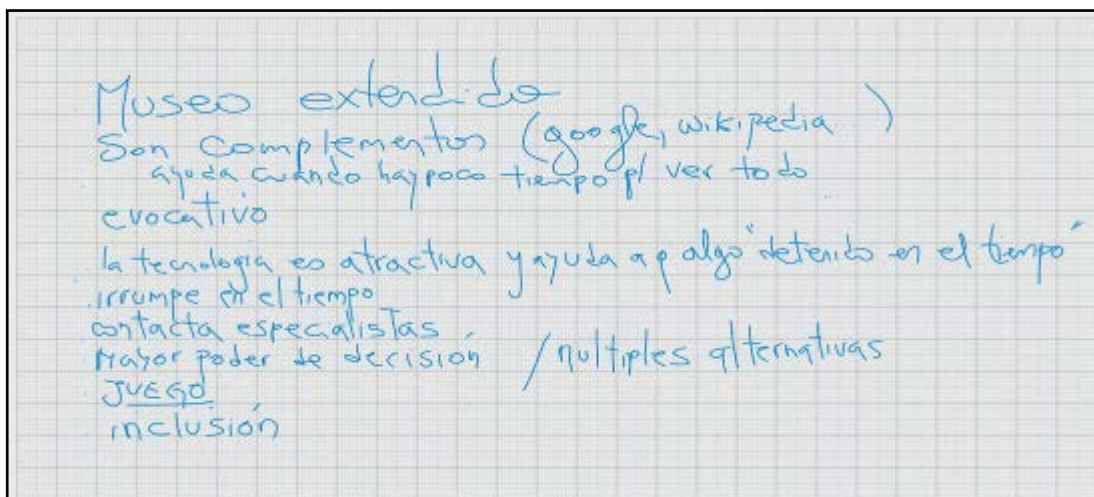 Museo extendido
Son complementos (google, wikipedia...)
ayuda cuando hay poco tiempo p/ ver todo
evocativo
la tecnología es atractiva y ayuda a q algo "detenido en el tiempo"
irrumpe en el tiempo
contacta especialistas
Mayor poder de decisión / multiples alternativas
JUEGO
inclusión